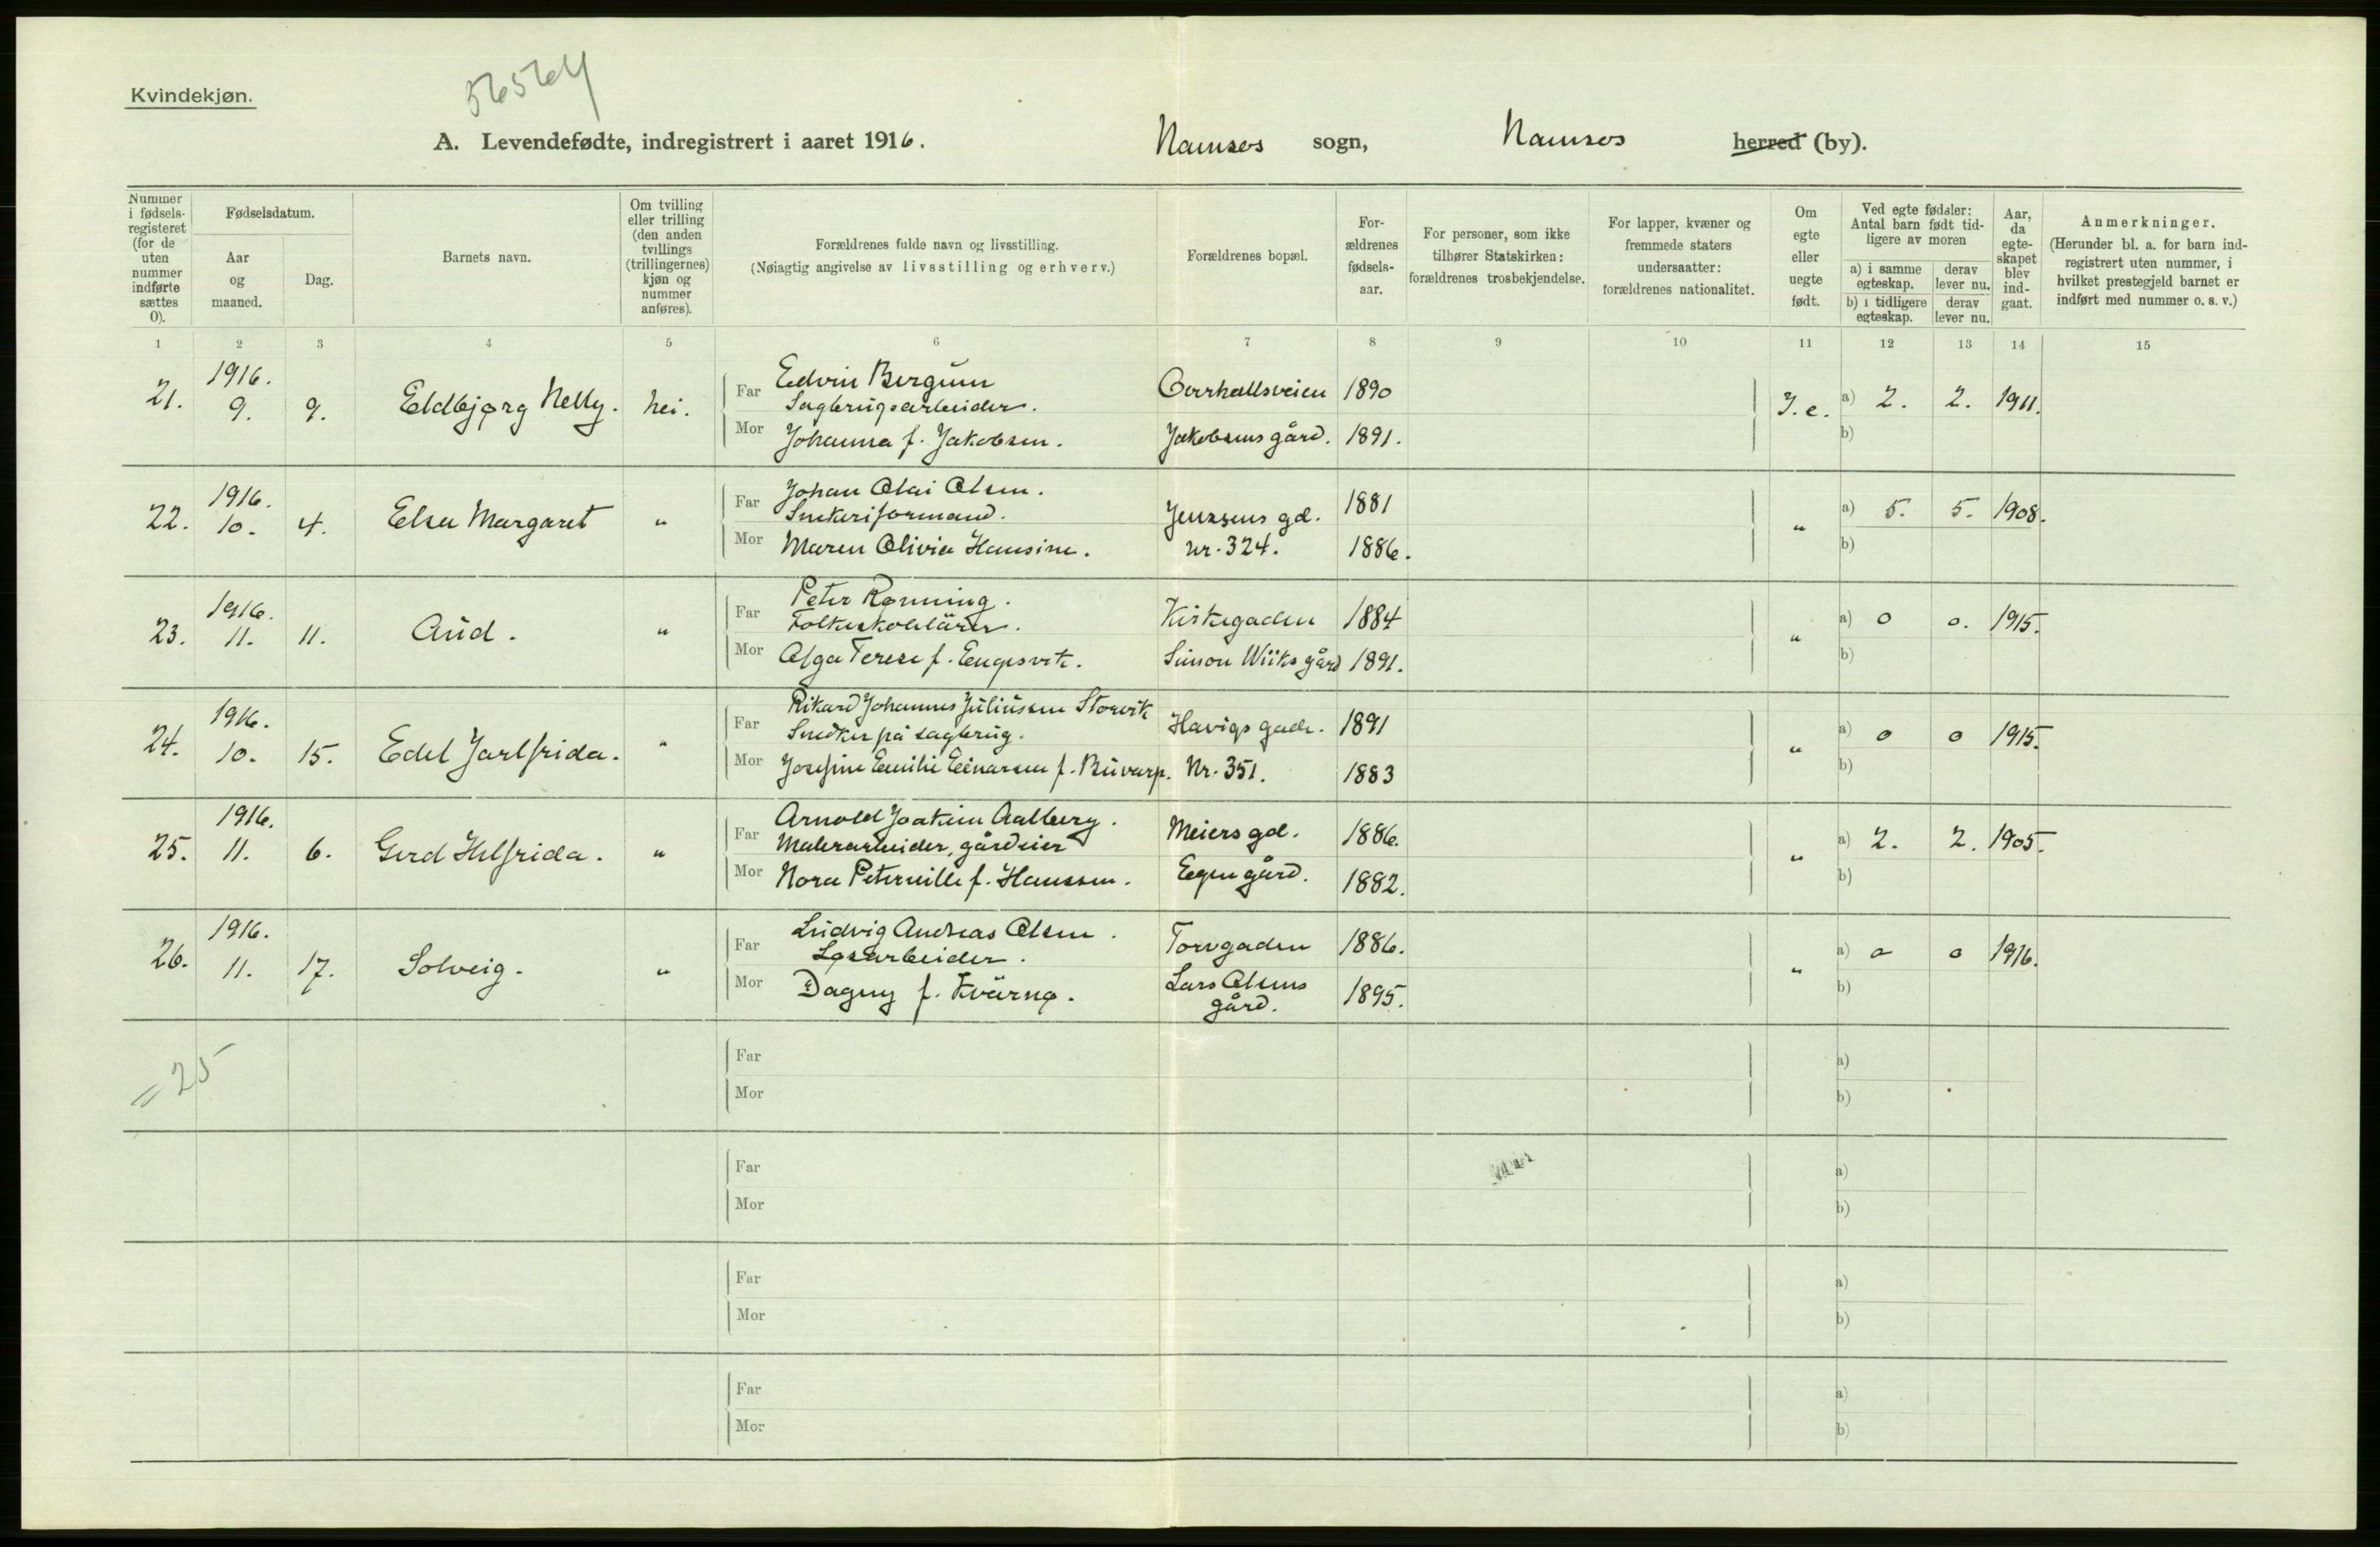 Kvindekjøn.
56564
A. Levendefødte, indregistrert i aaret 1916. Namsos sogn, Namsos herred (by).
Nummer i fødselsregisteret (for de uten nummer indførte sættes 0).
Fødselsdatum.
Aar og maaned.
Dag.
Barnets navn.
Om tvilling eller trilling (den anden tvillings (trillingernes) kjøn og nummer anføres).
Forældrenes fulde navn og livsstilling.
(Nøiagtig angivelse av livsstilling og erhverv.)
Forældrenes bopæl.
Forældrenes fødselsaar.
For personer, som ikke tilhører Statskirken: forældrenes trosbekjendelse.
For lapper, kvæner og fremmede staters undersaatter: forældrenes nationalitet.
Om egte eller uegte født.
Ved egte fødsler: Antal barn født tidligere av moren
a) i samme egteskap. derav lever nu.
b) i tidligere egteskap. derav lever nu.
Aar, da egteskapet blev indgaat.
Anmerkninger.
(Herunder bl. a. for barn indregistrert uten nummer, i hvilket prestegjeld barnet er indført med nummer o. s. v.)
1 2 3 4 5 6 7 8 9 10 11 12 13 14 15
21. 1916. 9. 9. Eldbjørg Nelly. nei.
Far Edvin Bergum 1890 a) 2. 2. 1911.
Sagbrugsarbeider.
Mor Johanna f. Jakobsen. Jakobsens gård. 1891. b)
22. 1916. 10. 4. Elsa Margaret "
Far Johan Olai Olsen. 1881 " a) 5. 5. 1908.
Snekkeriformand. Jenssens gd.
Mor Maren Olivia Hansine. nr. 324. 1886. b)
23. 1916. 11. 11. Aud. "
Far Peter Rønning. Kirkegaden 1884 " a) 0 0. 1915.
Folkeskolelärer.
Mor Olga Terese f. Simon Wiiks gård 1891. b)
24. 1916. 10. 15. Edel Jarlfrida. "
Far Rikard Johannes Juliussen Storvik Havigs gade. 1891 " a) 0 0 1915.
Snedker på sagbrug.
Mor Josefine Emilie Einarsen f. Nr. 351. 1883 b)
25. 1916. 11. 6. Gerd Helfrida. "
Far Arnold Joakim Aalberg. Meiers gd. 1886. " a) 2. 2. 1905.
Malerarbeider, gårdeier
Mor Nora Peternille f. Hanssen. Egen gård. 1882. b)
26. 1916. 11. 17. Solveig. "
Far Ludvig Andreas Olsen. Torvgaden 1886. " a) 0 0 1916.
Løsarbeider.
Mor Dagny f. Kvärnø. Lars Olsens gård. 1895. b)
= 25
Far a)
Mor b)
Far a)
Mor b)
Far a)
Mor b)
Far a)
Mor b)